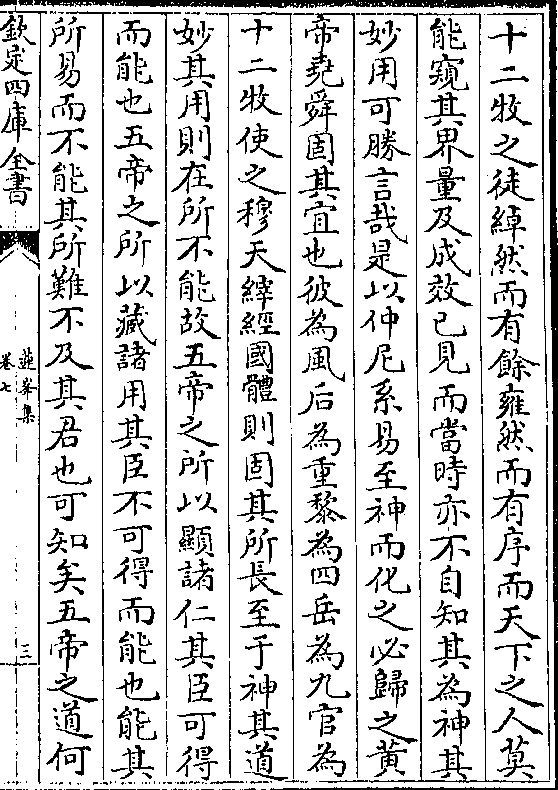 十二牧之徒綽然而有餘雍然而有序而天下之人莫
能窺其界量及成效已見而當時亦不自知其為神其
妙用可勝言哉是以仲尼系易至神而化之必歸之黄
帝堯舜固其宜也彼為風后為重黎為四岳為九官為
十二牧使之穆天縡經國體則固其所長至于神其道
妙其用則在所不能故五帝之所以顯諸仁其臣可得
而能也五帝之所以藏諸用其臣不可得而能也能其
所易而不能其所難不及其君也可知矣五帝之道何
欽定四庫全書
蓮峯集
卷七
三